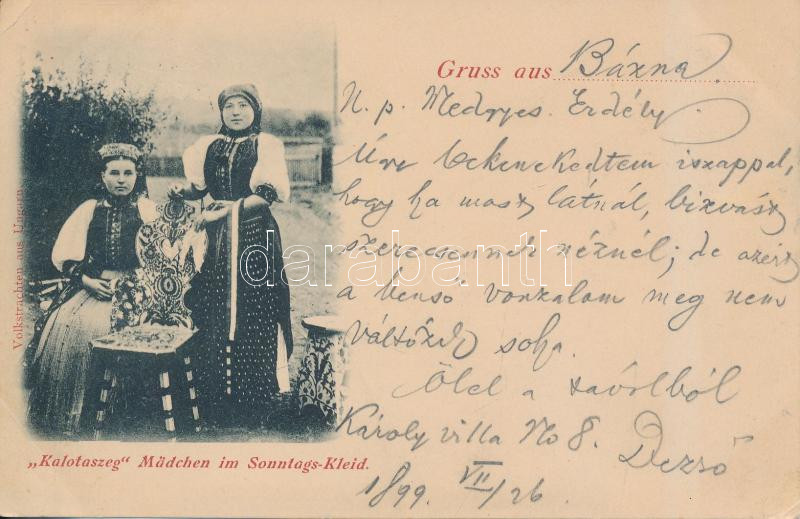 Gruss aus Bázna
U. p. Medgyes. Erdély.
Úgy bekenekedtem iszappal,
hogy ha most látnál, bizvást
szerecsennek néznél; de azért
a benső vonzalom meg nem
változik soha.
Ölel a távolból
Károly villa No 8. Dezső
1899. VII/26
Volkstrachten aus Ungarn.
„Kalotaszeg“ Mädchen im Sonntags-Kleid.
darabanth